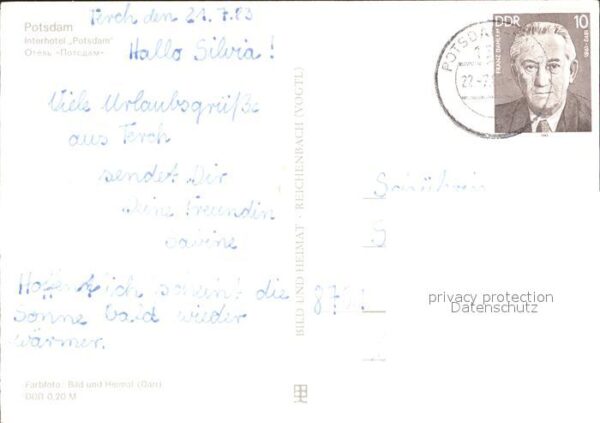 Potsdam
Interhotel „Potsdam"
Отель «Потсдам»
Ferch den 21.7.83
Hallo Silvia!
Viele Urlaubsgrüße
aus Ferch
sendet Dir
Deine Freundin
Sabine
Hoffentlich scheint die
Sonne bald wieder
wärmer.
Farbfoto: Bild und Heimat (Darr)
DDR 0,20 M
BILD UND HEIMAT · REICHENBACH (VOGTL)
POTSDA
DDR 10
FRANZ DAHLEM
privacy protection
Datenschutz